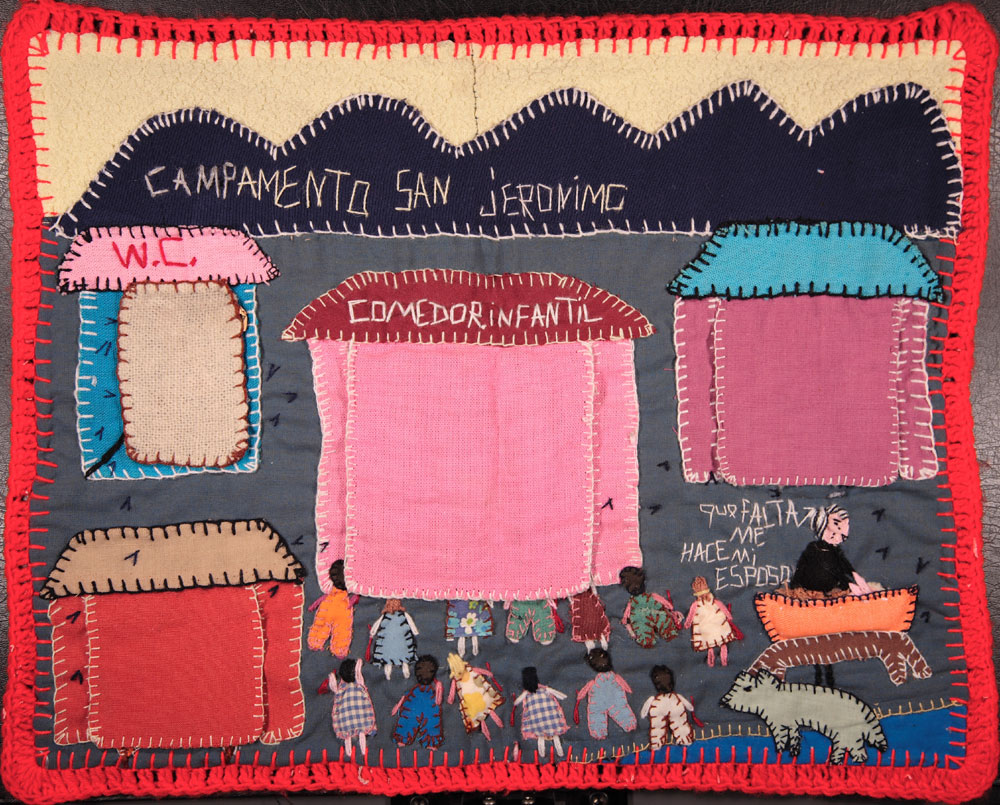 CAMPAMENTO SAN JERONIMO
W.C.
COMEDOR INFANTIL
que FALTA
ME
HACE MI
ESPOSO